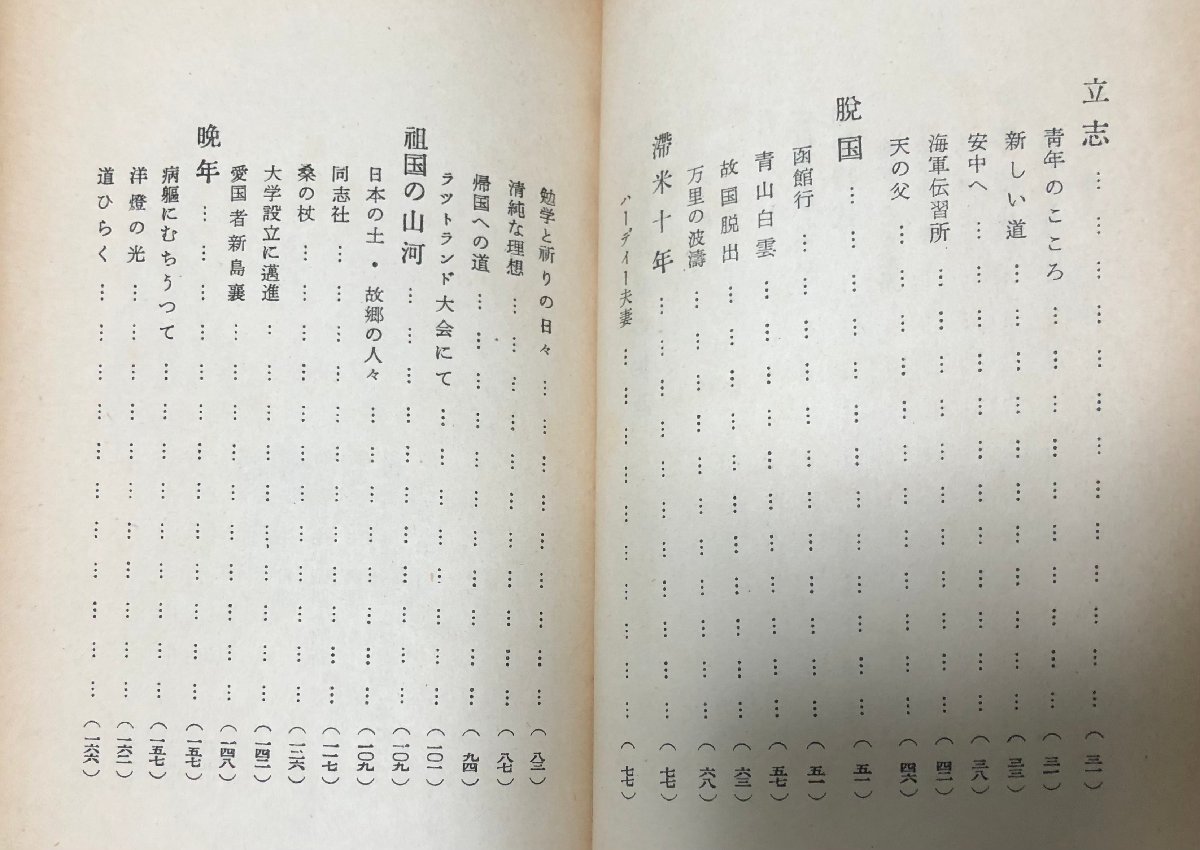 立志……………………………(三一)
青年のこころ……………………(三一)
新しい道…………………………(三三)
安中へ……………………………(三八)
海軍伝習所………………………(四二)
天の父……………………………(四六)
脱国……………………………(五一)
函館行……………………………(五一)
青山白雲…………………………(五七)
故国脱出…………………………(六三)
万里の波濤………………………(六八)
滞米十年…………………………(七七)
ハーディー夫妻…………………(七七)
勉学と祈りの日々………………(八三)
清純な理想………………………(八七)
帰国への道………………………(九四)
ラツトランド大会にて…………(一〇一)
祖国の山河………………………(一〇九)
日本の土・故郷の人々…………(一〇九)
同志社……………………………(一一七)
桑の杖……………………………(一三六)
大学設立に邁進…………………(一四二)
愛国者新島襄……………………(一四八)
晩年……………………………(一五七)
病軀にむちうつて………………(一五七)
洋燈の光…………………………(一六二)
道ひらく…………………………(一六六)